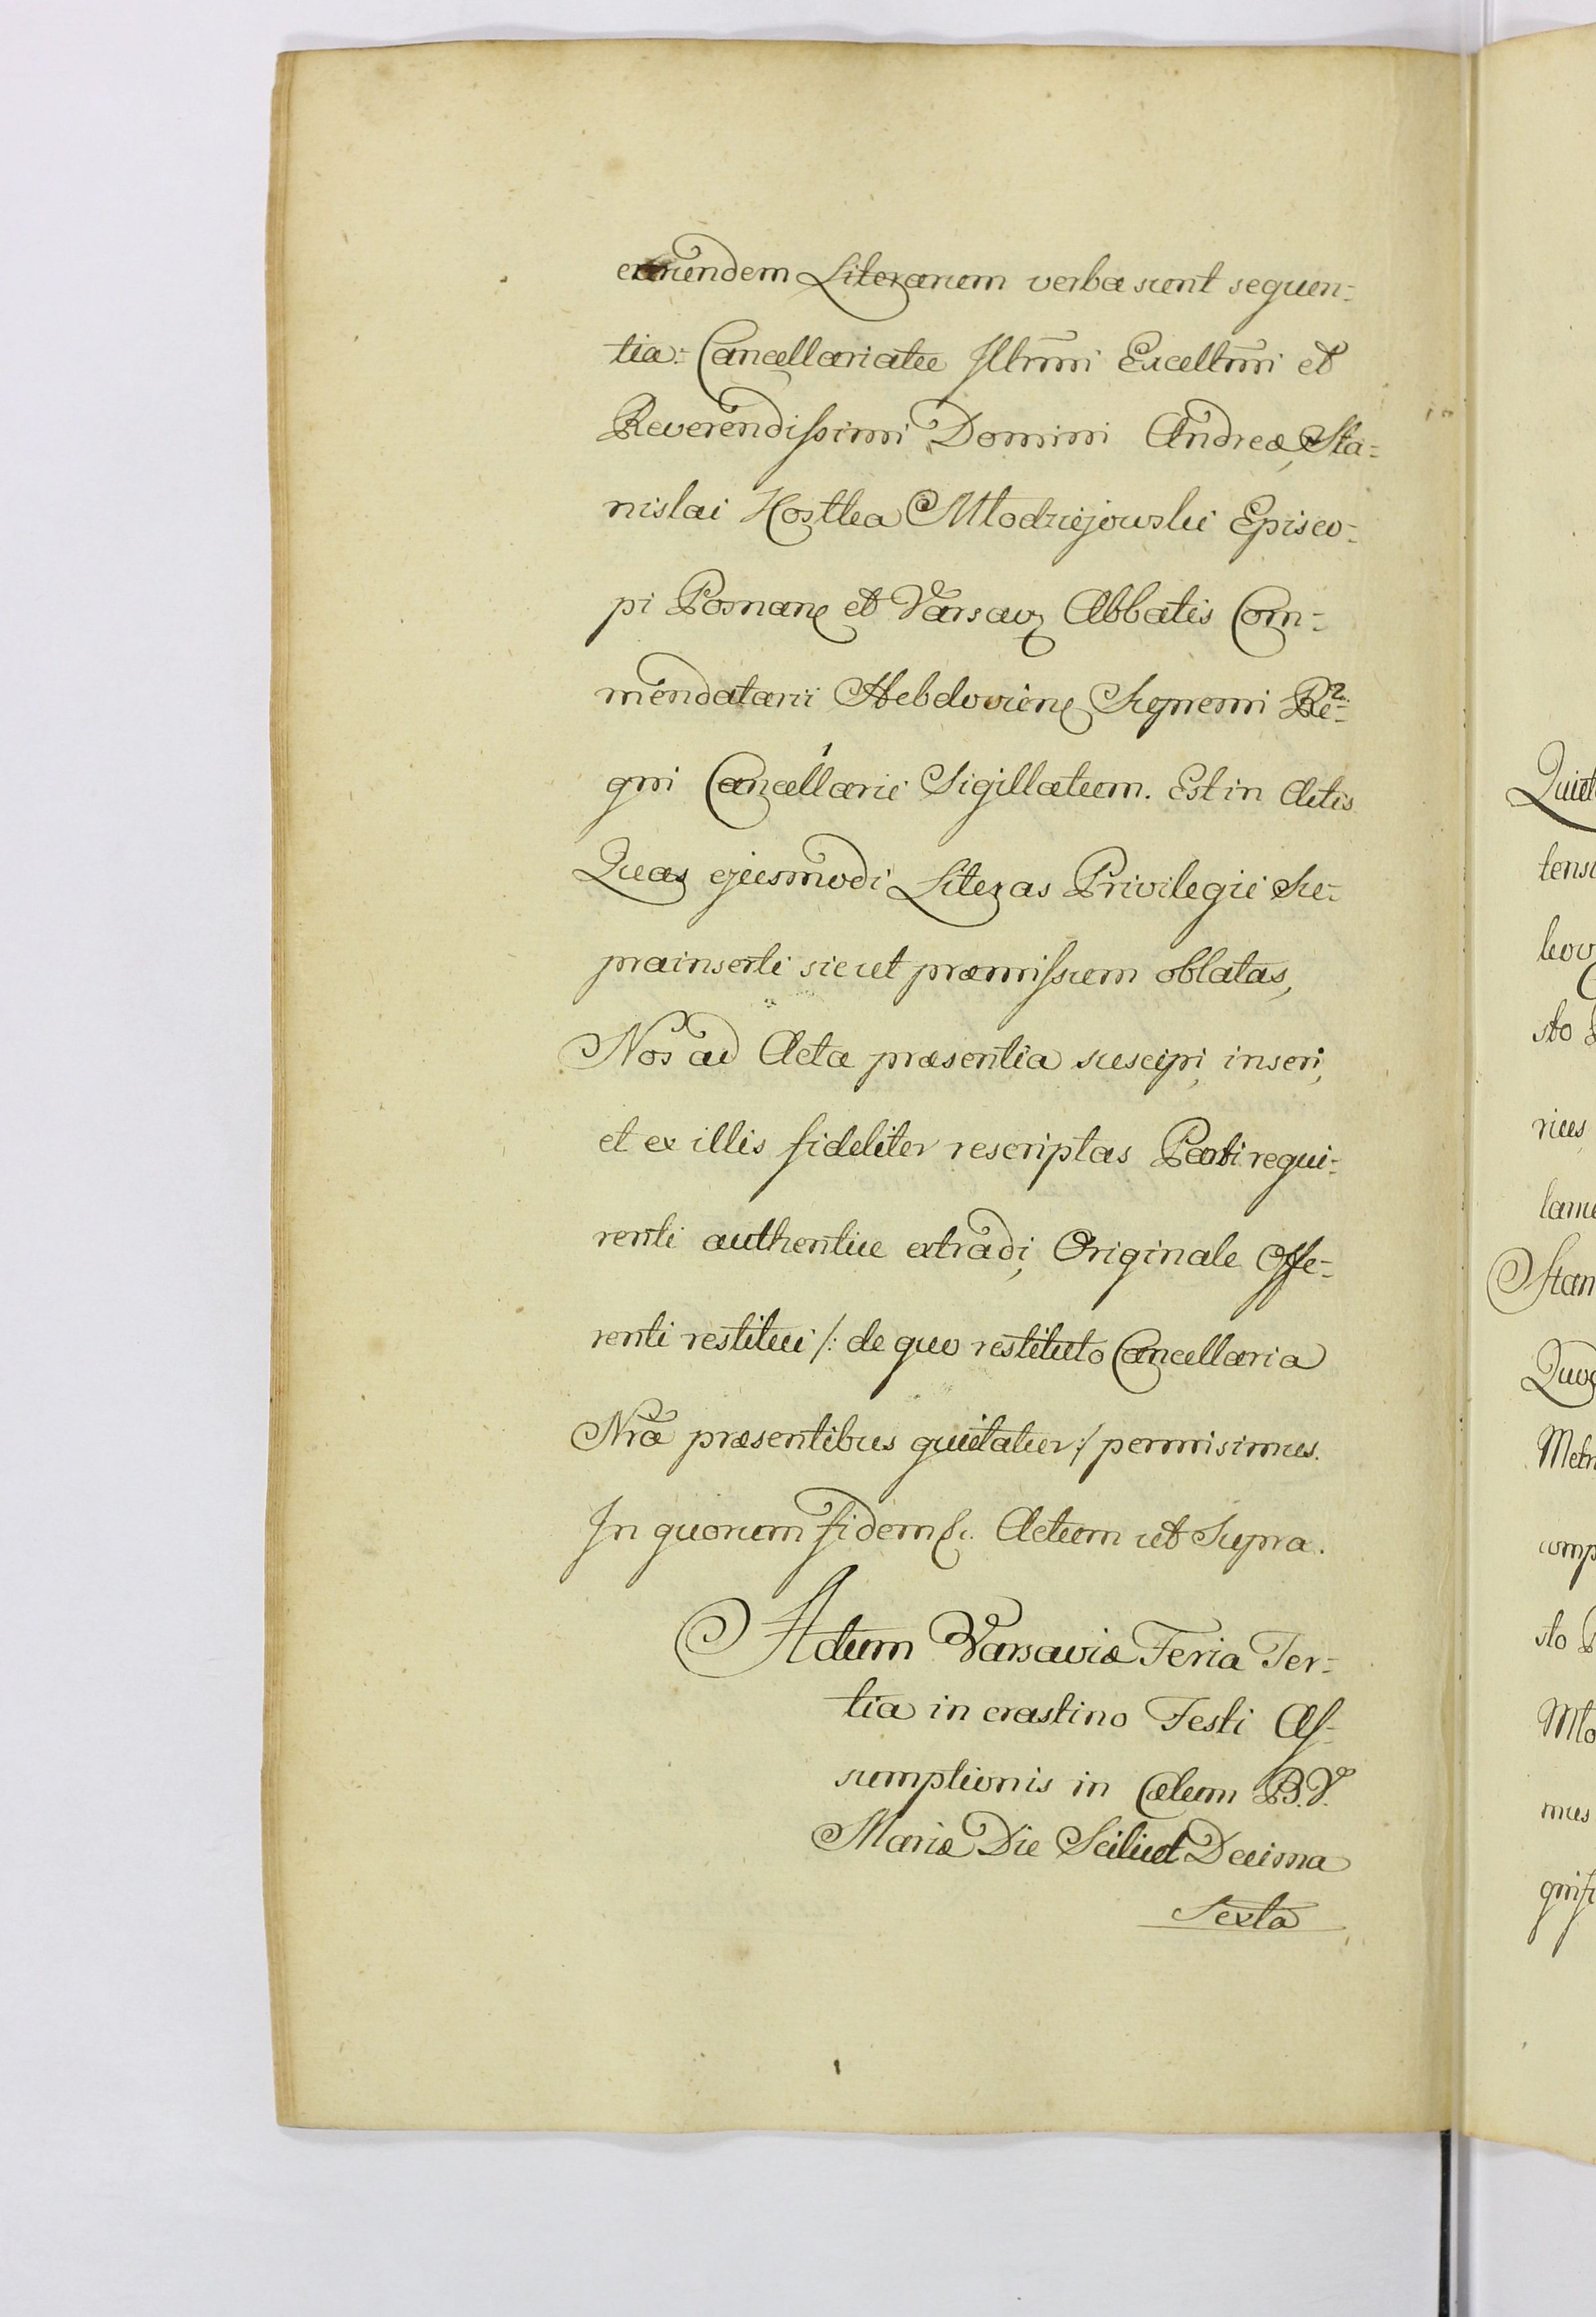 earundem Literarum verba sunt sequen=
tia: Cancellariatu Illrmi Excellmi et
Reverendissimi Domini Andreæ, Sta=
nislai Kostka Młodziejowski Episco=
pi Posnanę et Varsavę Abbatis Com=
mendatarii Hebdoviensę Supremi Re=
gni Cancellarii Sigillatum. Est in Actis
Quas ejusmodi Literas Privilegii Su=
prainserti sicut præmissum oblatas,
Nos ad Acta præsentia suscipi, inseri,
et ex illis fideliter rescriptas Parti requi=
renti authentice extradi, Originale Offe=
renti restitui /: de quo restituto Cancellaria
Nrã præsentibus quietatur :/ permisimus.
In quorum fidem &c. Actum ut Supra.
Actum Varsaviæ Feria Ter=
tia in crastino Festi As=
sumptionis in Cælum B. V.
Mariæ Die Scilicet Decima
Sexta
Quiet
tensi
kovę
sto
rius
lame
Stan
Quo
Metr
comp
sto
Mło
mus
gnifi